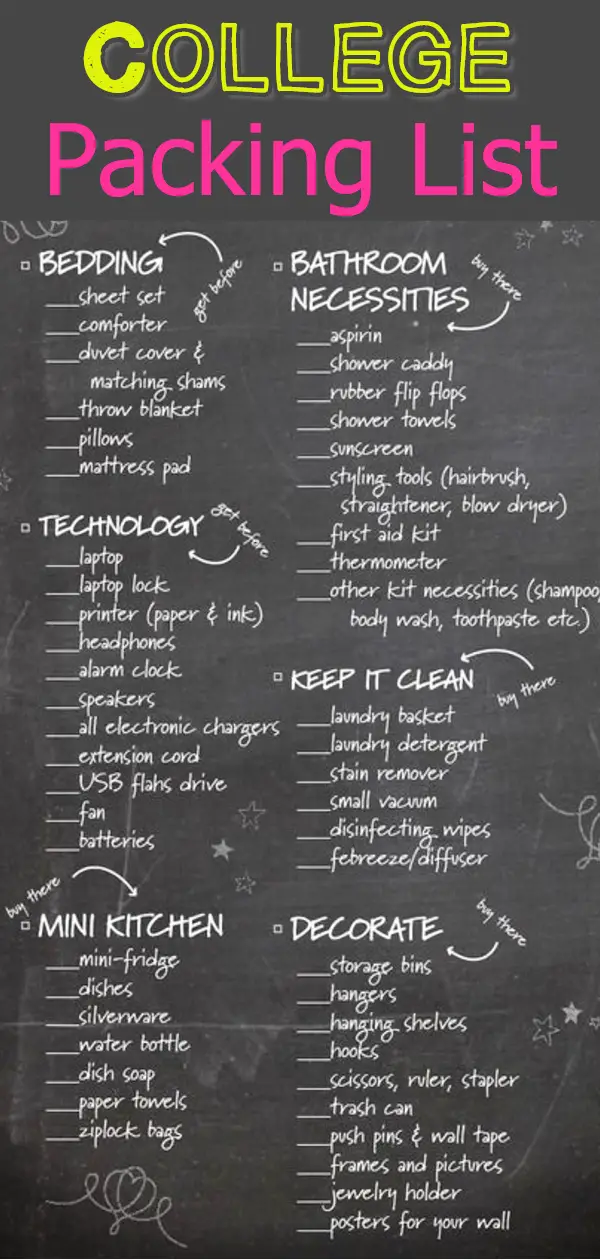 COLLEGE
Packing List
BEDDING
get before
___sheet set
___comforter
___duvet cover &
matching shams
___throw blanket
___pillows
___mattress pad
TECHNOLOGY
get before
___laptop
___laptop lock
___printer (paper & ink)
___headphones
___alarm clock
___speakers
___all electronic chargers
___extension cord
___USB flahs drive
___fan
___batteries
buy there
MINI KITCHEN
___mini-fridge
___dishes
___silverware
___water bottle
___dish soap
___paper towels
___ziplock bags
BATHROOM
NECESSITIES
buy there
___aspirin
___shower caddy
___rubber flip flops
___shower towels
___sunscreen
___styling tools (hairbrush,
straightener, blow dryer)
___first aid kit
___thermometer
___other kit necessities (shampoo,
body wash, toothpaste etc.)
KEEP IT CLEAN
buy there
___laundry basket
___laundry detergent
___stain remover
___small vacuum
___disinfecting wipes
___febreeze/diffuser
DECORATE
buy there
___storage bins
___hangers
___hanging shelves
___hooks
___scissors, ruler, stapler
___trash can
___push pins & wall tape
___frames and pictures
___jewelry holder
___posters for your wall